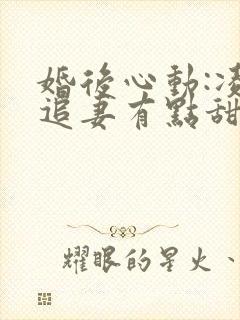 婚後心動:凌
追妻有點甜
耀眼的星火、